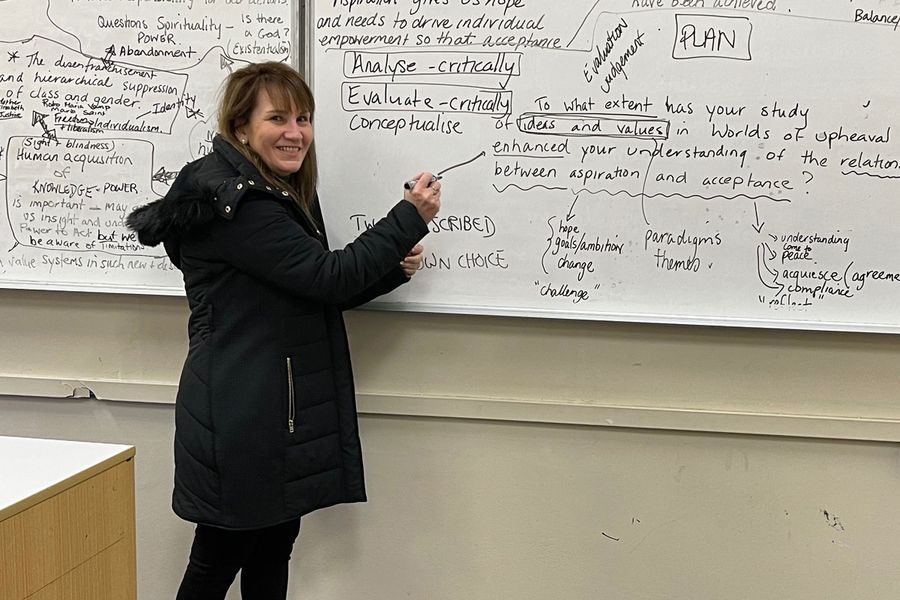 Questions Spirituality -
POWER.
Is there
a God?
Existentialism
Abandonment
* The disenfranchisement
and hierarchical suppression
of class and gender.
Identity
Freedom
+ liberalism
Individualism.
Justice
(Sight + blindness)
Human acquisition
of
KNOWLEDGE - POWER.
is important - may
us insight and
Power to Act but
be aware of limitations
value systems in such new +
Aspiration gives us hope
and needs to drive individual
empowerment so that acceptance
have been achieved.
Balance
Evaluation
judgement
PLAN
Analyse - critically
Evaluate - critically
Conceptualise
To what extent has your study
of ideas and values in Worlds of Upheaval
enhanced your understanding of the relation
between aspiration and acceptance?
SCRIBED
OWN CHOICE
hope
goals/ambition
change
"challenge"
paradigms
themes.
understanding
come to
peace.
acquiesce (agreeme
compliance
"reflect"